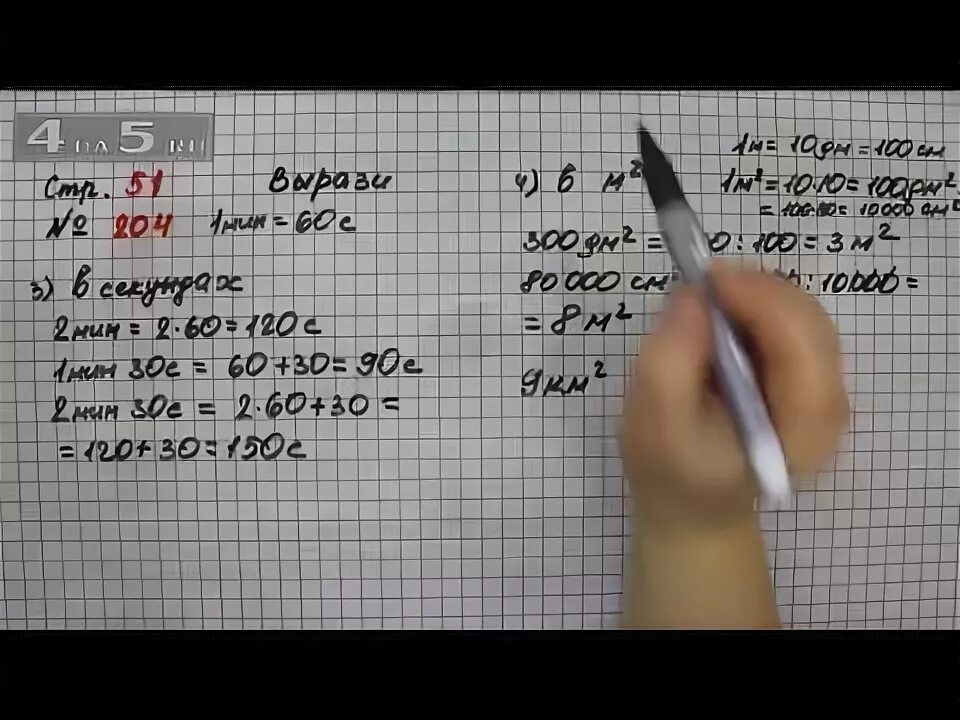 4 на 5 ru
Стр. 51
№ 204
Вырази
1мин = 60с
3) В секундах
2мин = 2·60 = 120с
1мин 30с = 60+30 = 90с
2мин 30с = 2·60+30 =
= 120+30 = 150с
1м = 10дм = 100см
4) В м²
1м² = 10·10 = 100дм²
= 100·100 = 10000 см²
300дм² = : 100 = 3м²
80000 см : 10000 =
= 8м²
9км²